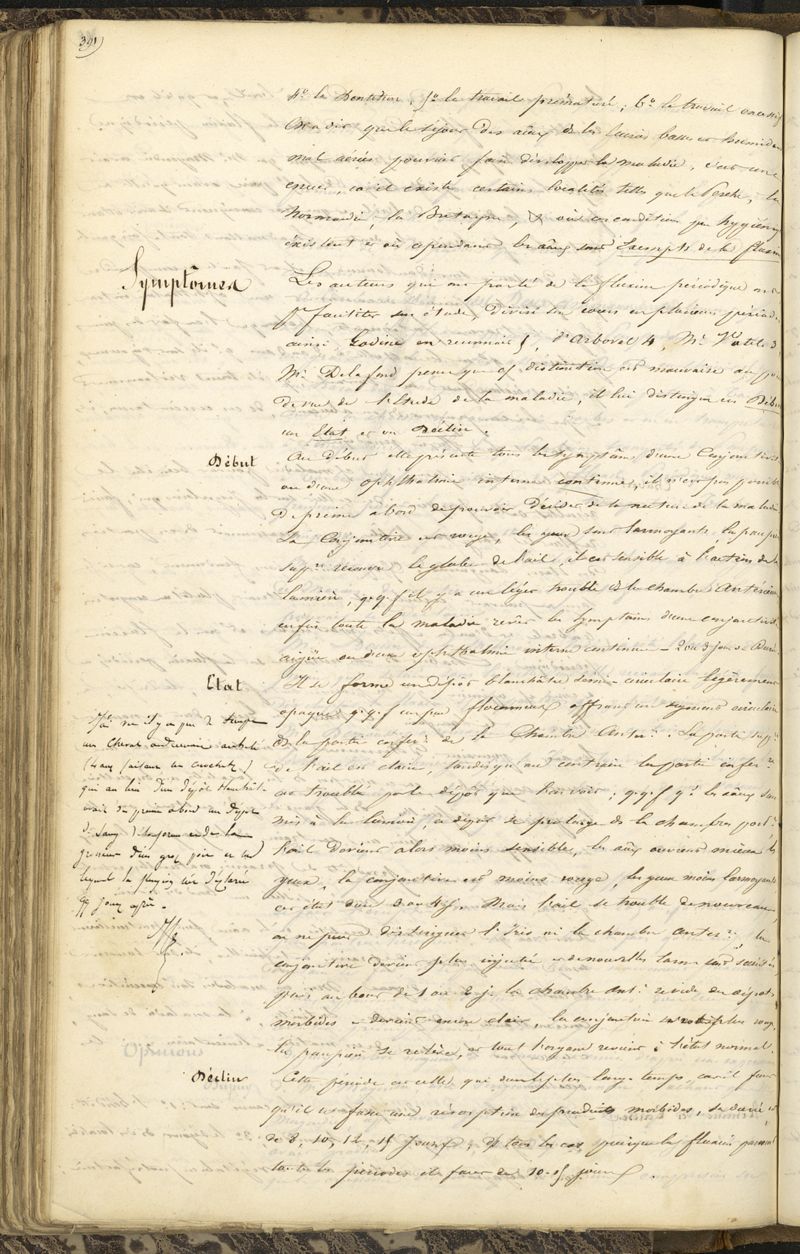 391
4º la Dentition, 5º le travail prématuré; 6º le travail excessif
On a dit que le séjour des aâux de les lieux bas et humides
mal aérés pouvait faire développer la maladie, c'est une
erreur, car il existe certaines localités telles que le Perche, la
Normandie, la Bretagne, & où ces conditions peu hygiéniq
existent et où cependant les aâux sont Exempts de la fluxion
Symptômes
Les auteurs qui ont parlé de la fluxion périodique ont
pr faciliter son étude, divisé son cours en plusieurs périodes
ainsi Godine en reconnait 5, d'Arboval 4, Mr Vatel 3
Mr Delafond pense que cs distinction est mauvaise au point
de vue de l'Etude de la maladie, et lui distingue un Début
un Etat et un Déclin.
Début
Au Début elle présente tous les symptômes d'une Conjonctivite
ou d'une ophthalmie interne continue, il n'est pas possible
De prime abord de pouvoir Décider de la nature de la maladie
La Conjonctive est rouge, les yeux sont larmoyants, la paupre
supre recouvre le globe de l'œil, il est sensible à l'action de la
lumière, qqf il y a un léger trouble de la chambre Antérieure
enfin toute la maladie revêt les symptômes d'une conjonctivite
aigüe ou d'une ophthalmie interne continue – 2 ou 3 jours de Durée
Etat
Il se forme un dépôt blanchâtre semi-circulaire légèrement
opaque qqf un peu floconneux offrant un segment circulaire
de la partie inférre de la Chambre Antre. La partie supre
de l'œil est claire, tandis qu'au contraire la partie inférre
est trouble par le dépôt que l'on voit; qqf qd les aâux sont
mis à la lumière, ce dépôt se prolonge de la chambre postre
l'œil devient alors moins sensible, les aâux ouvrent mieux les
yeux, la conjonctive est moins rouge, les yeux moins larmoyants
cet état dure 3 ou 4 js. Mais l'œil se trouble de nouveau,
on ne peut distinguer l'Iris ni la chambre antre, la
conjonctive devient plus injectée et de nouvelles larmes sont sécrétées
puis au bout de 1 ou 2 js la chambre antre
morbides – devient encore clair, la conjonctive plus rouge
la paupière se retire, et tout l'organe revient à l'état normal.
J'ai vu il y a que 2
un Cheval
qui au lieu d'un dépôt blanchâtre
avait de prime abord un dépôt
de sang
grosseur d'un gros pois et
lequel la fluxion s'est déclarée
qq jours après.
Déclin
Cette période est celle qui dure le plus longtemps, car il faut
qu'il se fasse une résorption des produits morbides, sa durée est
de 8, 10, 12, 15 Jours, ds tous les cas, puisque la fluxion parcourt
toutes les périodes il faut de 10-15 jours